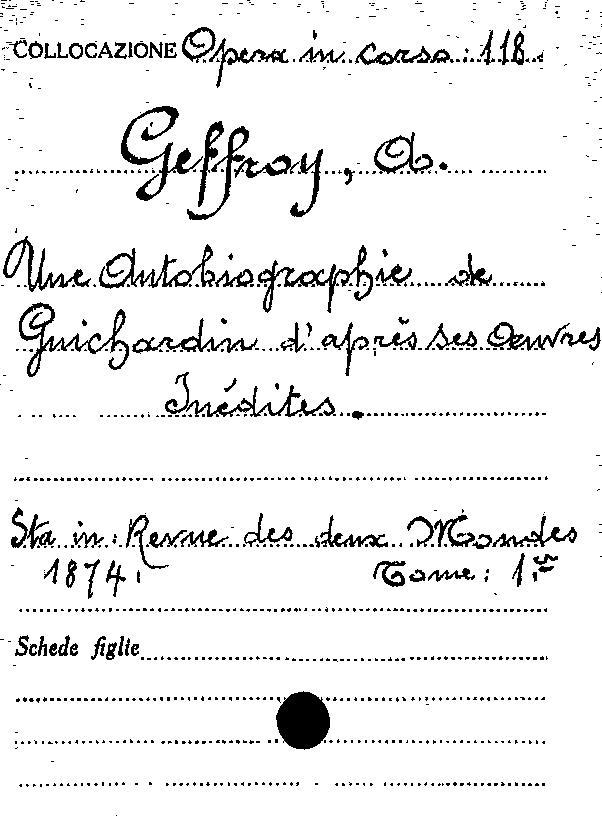 COLLOCAZIONE Opera in corso: 118.
Geffroy, A.
Une Autobiographie de
Guichardin d'après ses Œuvres
Inédites.
Sta in: Revue des deux Mondes
1874. Tome: 1er
Schede figlie